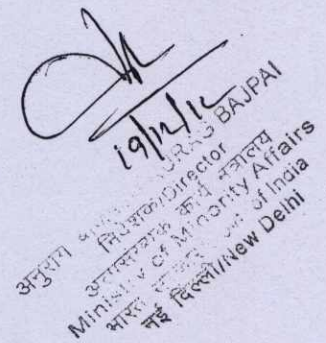 19/12/12
अनुराग RAG BAJPAI
निदेशक/Director
अल्पसंख्यक कार्य मंत्रालय
Ministry of Minority Affairs
भारत of India
नई दिल्ली/New Delhi